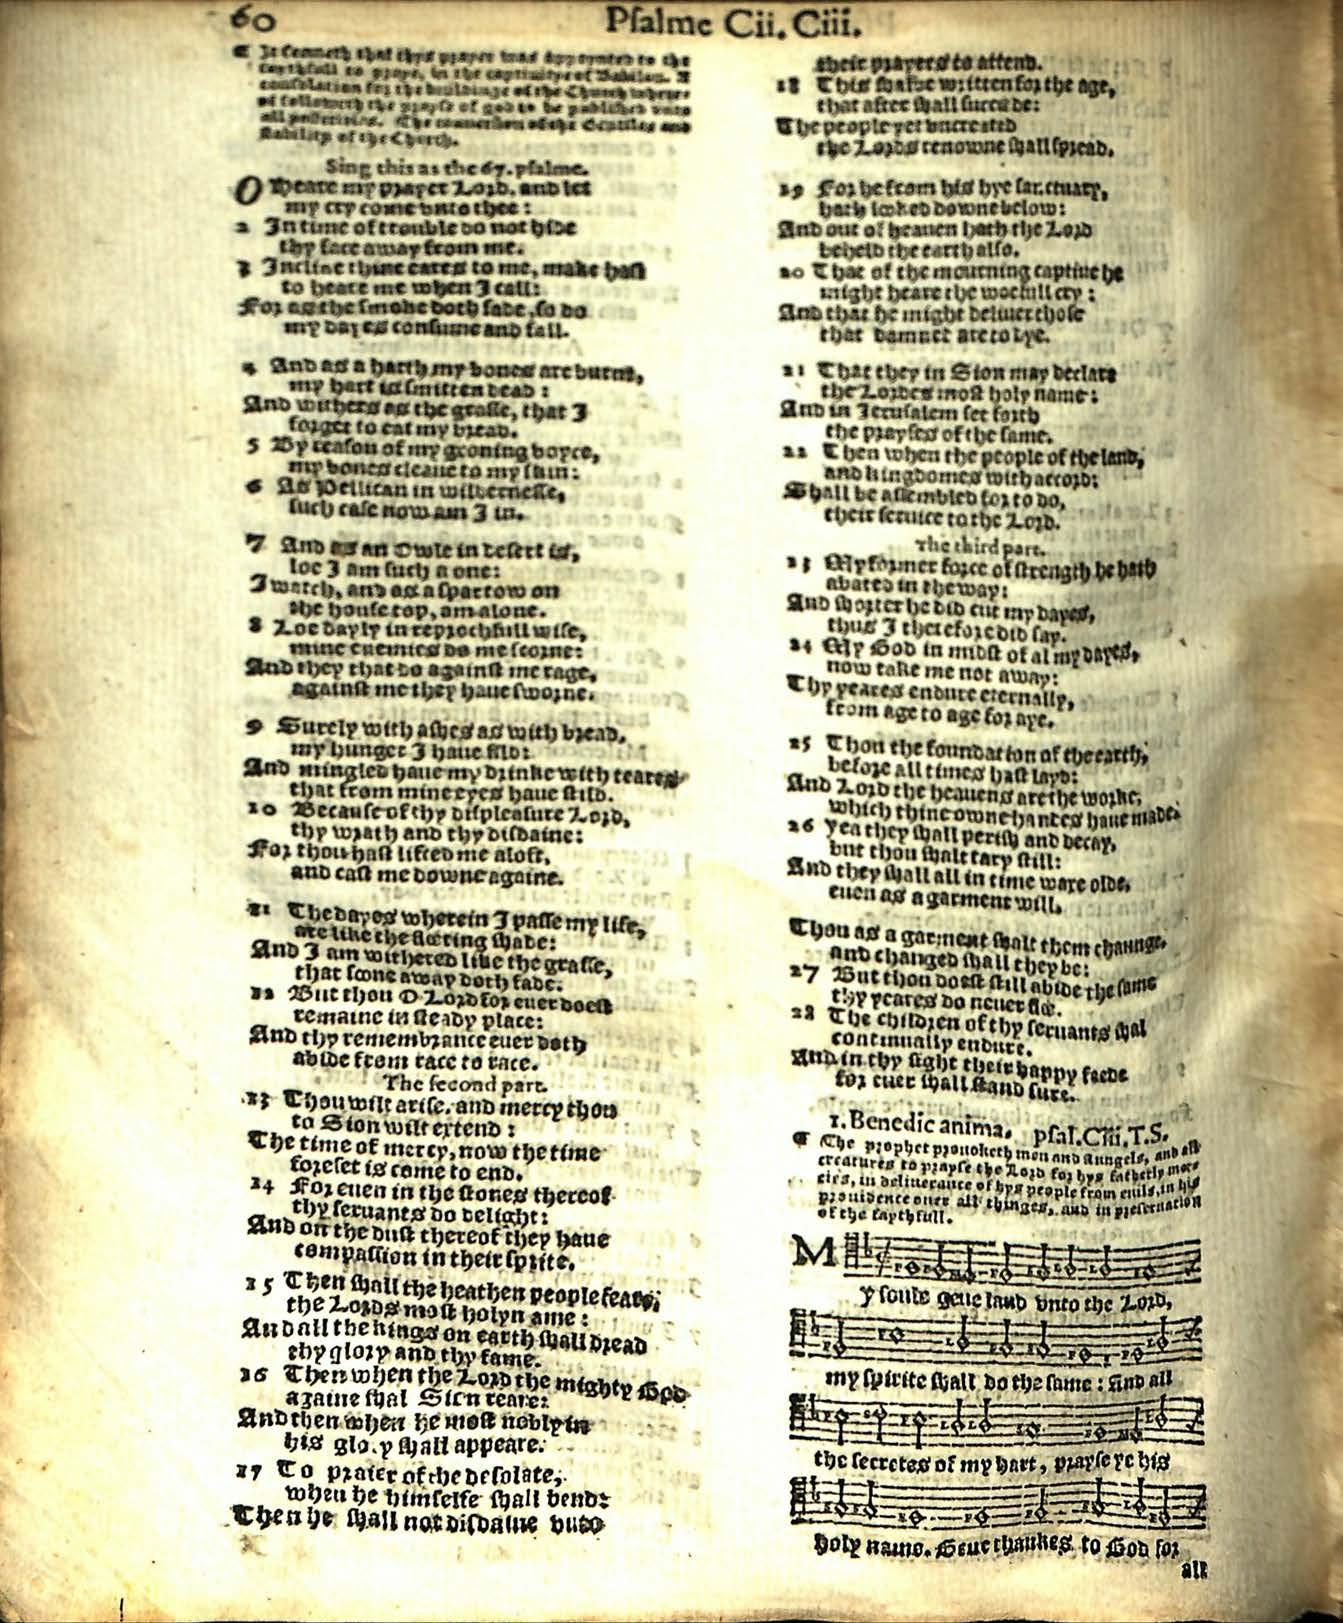 60
Pſalme Cii. Ciii.
¶ It ſeemeth that thys prayer was appoynted to the
faythfull to praye, in the captiuitye of Babilon. A
conſolation for the buildinge of the Church where-
of followeth the prayſe of god to be publiſhed vnto
all poſterities. The conuerſion of the Gentiles and
ſtability of the Church.
Sing this as the 67. pſalme.
O Heare my prayer Lord, and let
my cry come vnto thee:
2 In time of trouble do not hide
thy face away from me.
3 Incline thine eares to me, make haſt
to heare me when I call:
For as the ſmoke doth fade, ſo do
my dayes conſume and fall.
4 And as a harth my bones are burnt,
my hart is ſmitten dead:
And withers as the graſſe, that I
forget to eat my bread.
5 By reaſon of my groning voyce,
my bones cleaue to my ſkin:
6 As Pellican in wilderneſſe,
ſuch caſe now am I in.
7 And as an Owle in deſert is,
loe I am ſuch a one:
I watch, and as a ſparrow on
the houſe top, am alone.
8 Loe dayly in reprochfull wiſe,
mine enemies do me ſcorne:
And they that do againſt me rage,
againſt me they haue ſworne.
9 Surely with aſhes as with bread,
my hunger I haue fild:
And mingled haue my drinke with teares
that from mine eyes haue ſtild.
10 Becauſe of thy diſpleaſure Lord,
thy wrath and thy diſdaine:
For thou haſt lifted me aloft,
and caſt me downe againe.
11 The dayes wherein I paſſe my life,
are like the fleeting ſhade:
And I am withered like the graſſe,
that ſoone away doth fade.
12 But thou O Lord for euer doeſt
remaine in ſteady place:
And thy remembrance euer doth
abide from race to race.
The ſecond part.
13 Thou wilt ariſe, and mercy thou
to Sion wilt extend:
The time of mercy, now the time
foreſet is come to end.
14 For euen in the ſtones thereof
thy ſeruants do delight:
And on the duſt thereof they haue
compaſſion in their ſprite.
15 Then ſhall the heathen people feare,
the Lords moſt holy n ame:
And all the kings on earth ſhall dread
thy glory and thy fame.
16 Then when the Lord the mighty God
againe ſhal Sion reare:
And then when he moſt nobly in
his glory ſhall appeare.
17 To praier of the deſolate,
when he himſelfe ſhall bend:
Then he ſhall not diſdaine vnto
their prayers to attend.
18 This ſhalbe written for the age,
that after ſhall ſucceede:
The people yet vncreated
the Lords renowne ſhall ſpread.
19 For he from his hye ſanctuary,
hath looked downe below:
And out of heauen hath the Lord
beheld the earth alſo.
20 That of the mourning captiue he
might heare the woefull cry:
And that he might deliuer thoſe
that damned are to dye.
21 That they in Sion may declare
the Lordes moſt holy name:
And in Jeruſalem ſet forth
the prayſes of the ſame.
22 Then when the people of the land,
and kingdomes with accord:
Shall be aſſembled for to do,
their ſeruice to the Lord.
The third part.
23 My former force of ſtrength he hath
abated in the way:
And ſhorter he did cut my dayes,
thus I therefore did ſay.
24 My God in midſt of al my dayes,
now take me not away:
Thy yeares endure eternally,
from age to age for aye.
25 Thou the foundation of the earth,
before all times haſt layd:
And Lord the heauens are the worke,
which thine owne handes haue made.
26 Yea they ſhall periſh and decay,
but thou ſhalt tary ſtill:
And they ſhall all in time waxe olde,
euen as a garment will.
Thou as a garment ſhalt them chaunge,
and changed ſhall they be:
27 But thou doeſt ſtill abide the ſame
thy yeares do neuer flee.
28 The children of thy ſeruants ſhal
continually endure.
And in thy ſight their happy ſeede
for euer ſhall ſtand ſure.
1. Benedic anima. pſal. Ciii. T. S.
¶ The prophet prouoketh men and Aungels, and all
creatures to prayſe the Lord for hys fatherly mer-
cies, in deliuerance of hys people from euils, in his
prouidence ouer all thinges, and in preſeruation
of the faythfull.
My ſoule geue laud vnto the Lord,
my ſpirite ſhall do the ſame: And all
the ſecretes of my hart, prayſe ye his
holy name. Geue thankes to God for
all